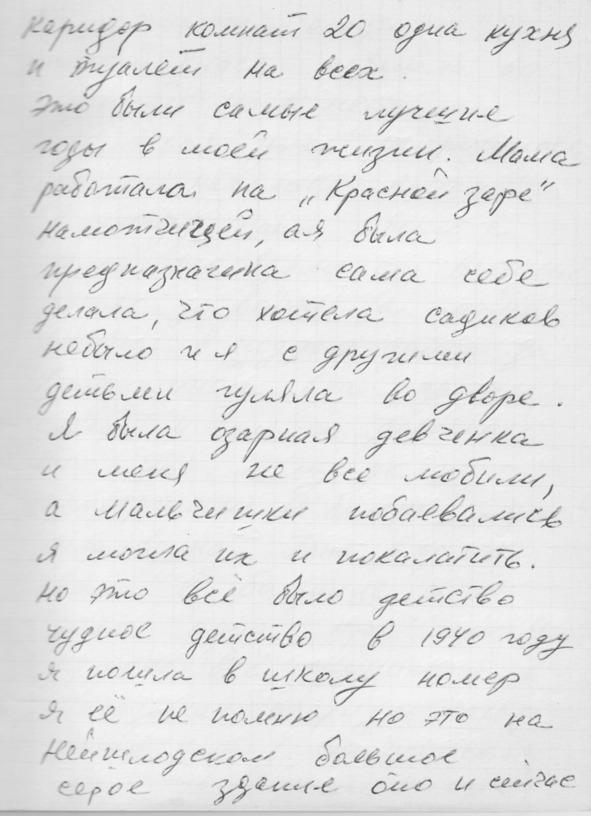 Каридор комнат 20 одна кухня
и туалет на всех.
это были самые лучшие
годы в моей жизни. Мама
работала на „Красной заре"
намотчицей, а я была
предназначина сама себе
делала, что хотела садиков
небыло и я с другими
детьми гуляла во дворе.
Я была озарная девченка
и меня не все любили,
а мальчишки побаевались
я могла их и поколатить.
но это всё было детство
чудное детство в 1940 году
я пошла в школу номер
я её не помню но это на
Нейшлодском большое
серое здание оно и сейчас